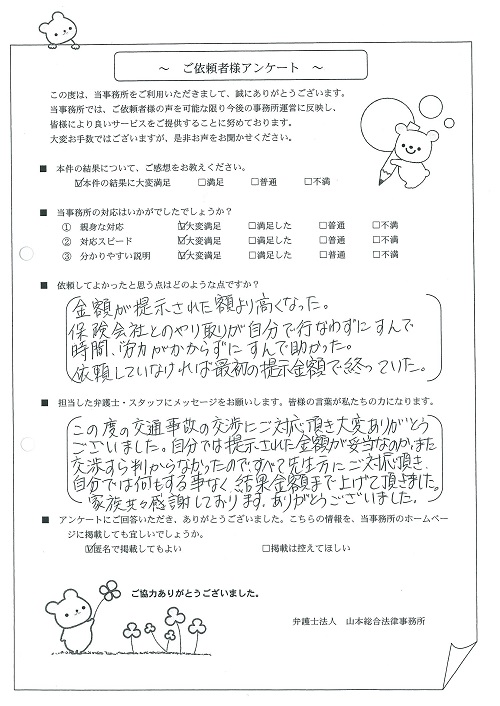 ～ ご依頼者様アンケート ～
この度は、当事務所をご利用いただきまして、誠にありがとうございます。
当事務所では、ご依頼者様の声を可能な限り今後の事務所運営に反映し、
皆様により良いサービスをご提供することに努めております。
大変お手数ではございますが、是非お声をお聞かせください。
■ 本件の結果について、ご感想をお教えください。
☑本件の結果に大変満足 □満足 □普通 □不満
■ 当事務所の対応はいかがでしたでしょうか？
① 親身な対応 ☑大変満足 □満足した □普通 □不満
② 対応スピード ☑大変満足 □満足した □普通 □不満
③ 分かりやすい説明 ☑大変満足 □満足した □普通 □不満
■ 依頼してよかったと思う点はどのような点ですか？
金額が提示された額より高くなった。
保険会社とのやり取りが自分で行なわずにすんで
時間、労力がかからずにすんで助かった。
依頼していなければ最初の提示金額で終っていた。
■ 担当した弁護士・スタッフにメッセージをお願いします。皆様の言葉が私たちの力になります。
この度の交通事故の交渉にご対応頂き大変ありがとう
ございました。自分では提示された金額が妥当なのか、また
交渉すら判からなかったのですべて先生方にご対応頂き、
自分では何もする事なく、結果金額まで上げて頂きました。
家族共々感謝しております。ありがとうございました。
■ アンケートにご回答いただき、ありがとうございました。こちらの情報を、当事務所のホームペー
ジに掲載しても宜しいでしょうか。
☑匿名で掲載してもよい □掲載は控えてほしい
ご協力ありがとうございました。
弁護士法人 山本総合法律事務所